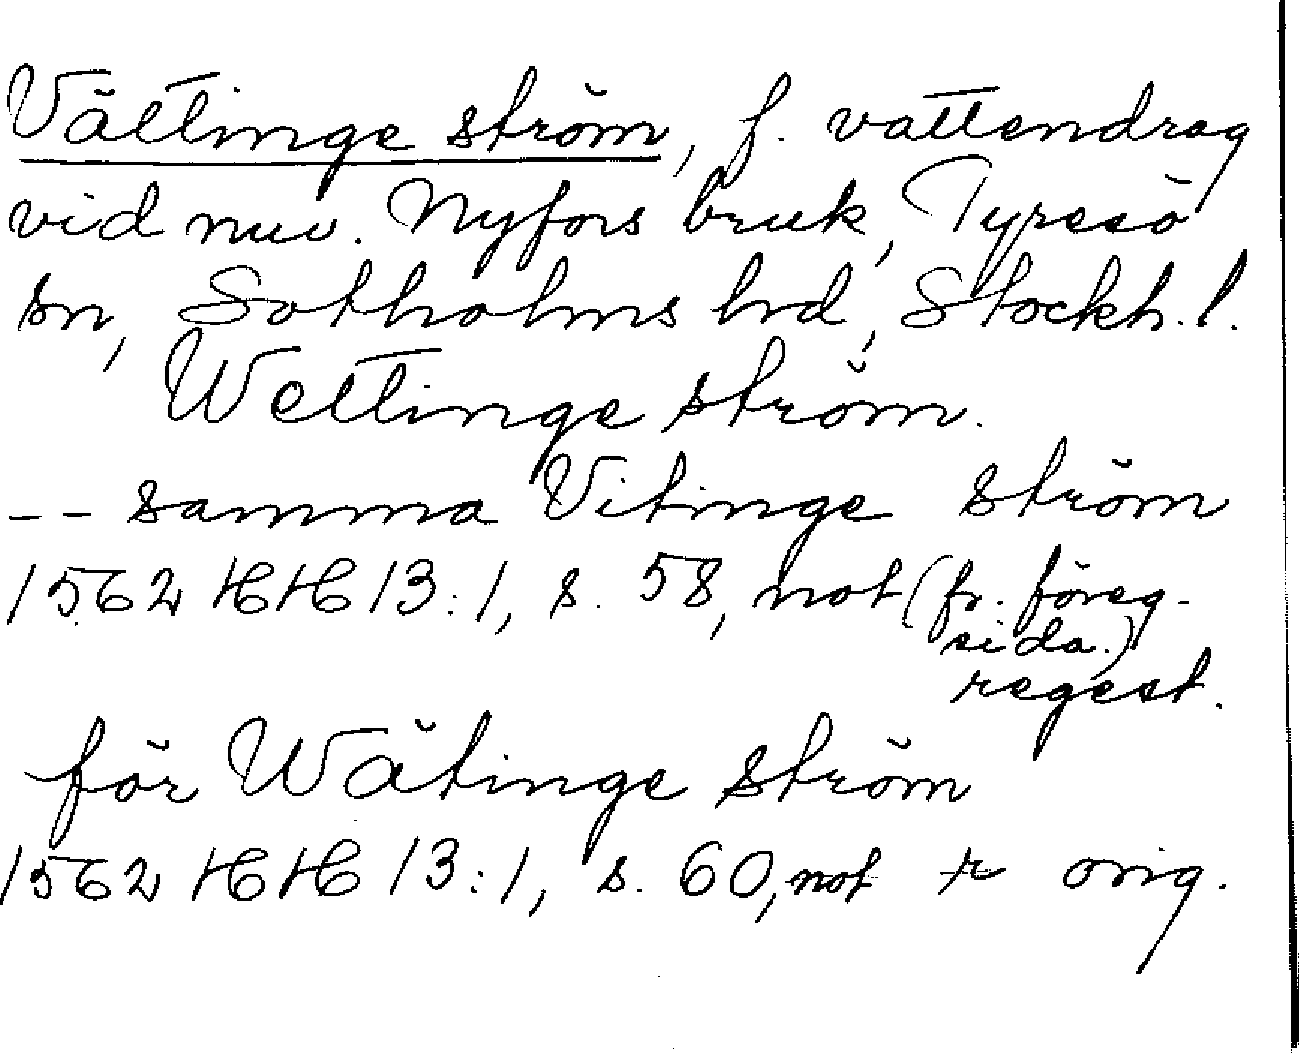 Vättinge ström, f. vattendrag
vid nuv. Nyfors bruk, Tyresö
sn, Sotholms hrd, Stockh. l.
Wettinge ström.
-- samma Vitinge ström
1562 HH 13:1, s. 58, not (fr. föreg.
sida.)
regest.
för Wätinge ström
1562 HH 13:1, s. 60, not + orig.